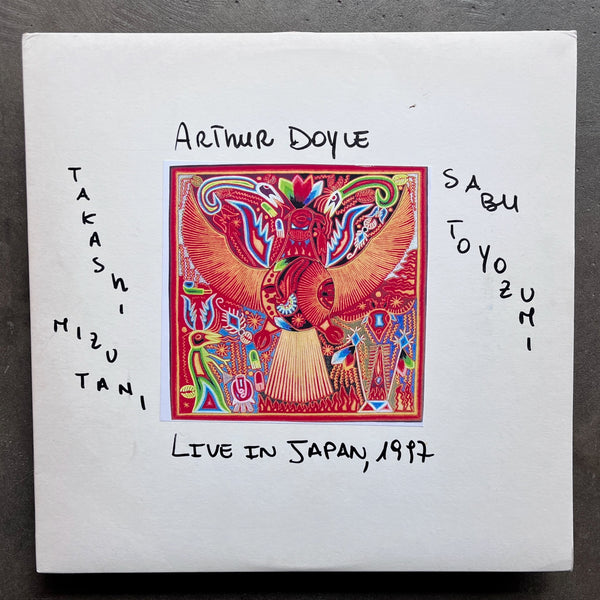 ARTHUR DOYLE
TAKASHI
MIZUTANI
SABU
TOYOZUMI
LIVE IN JAPAN, 1997